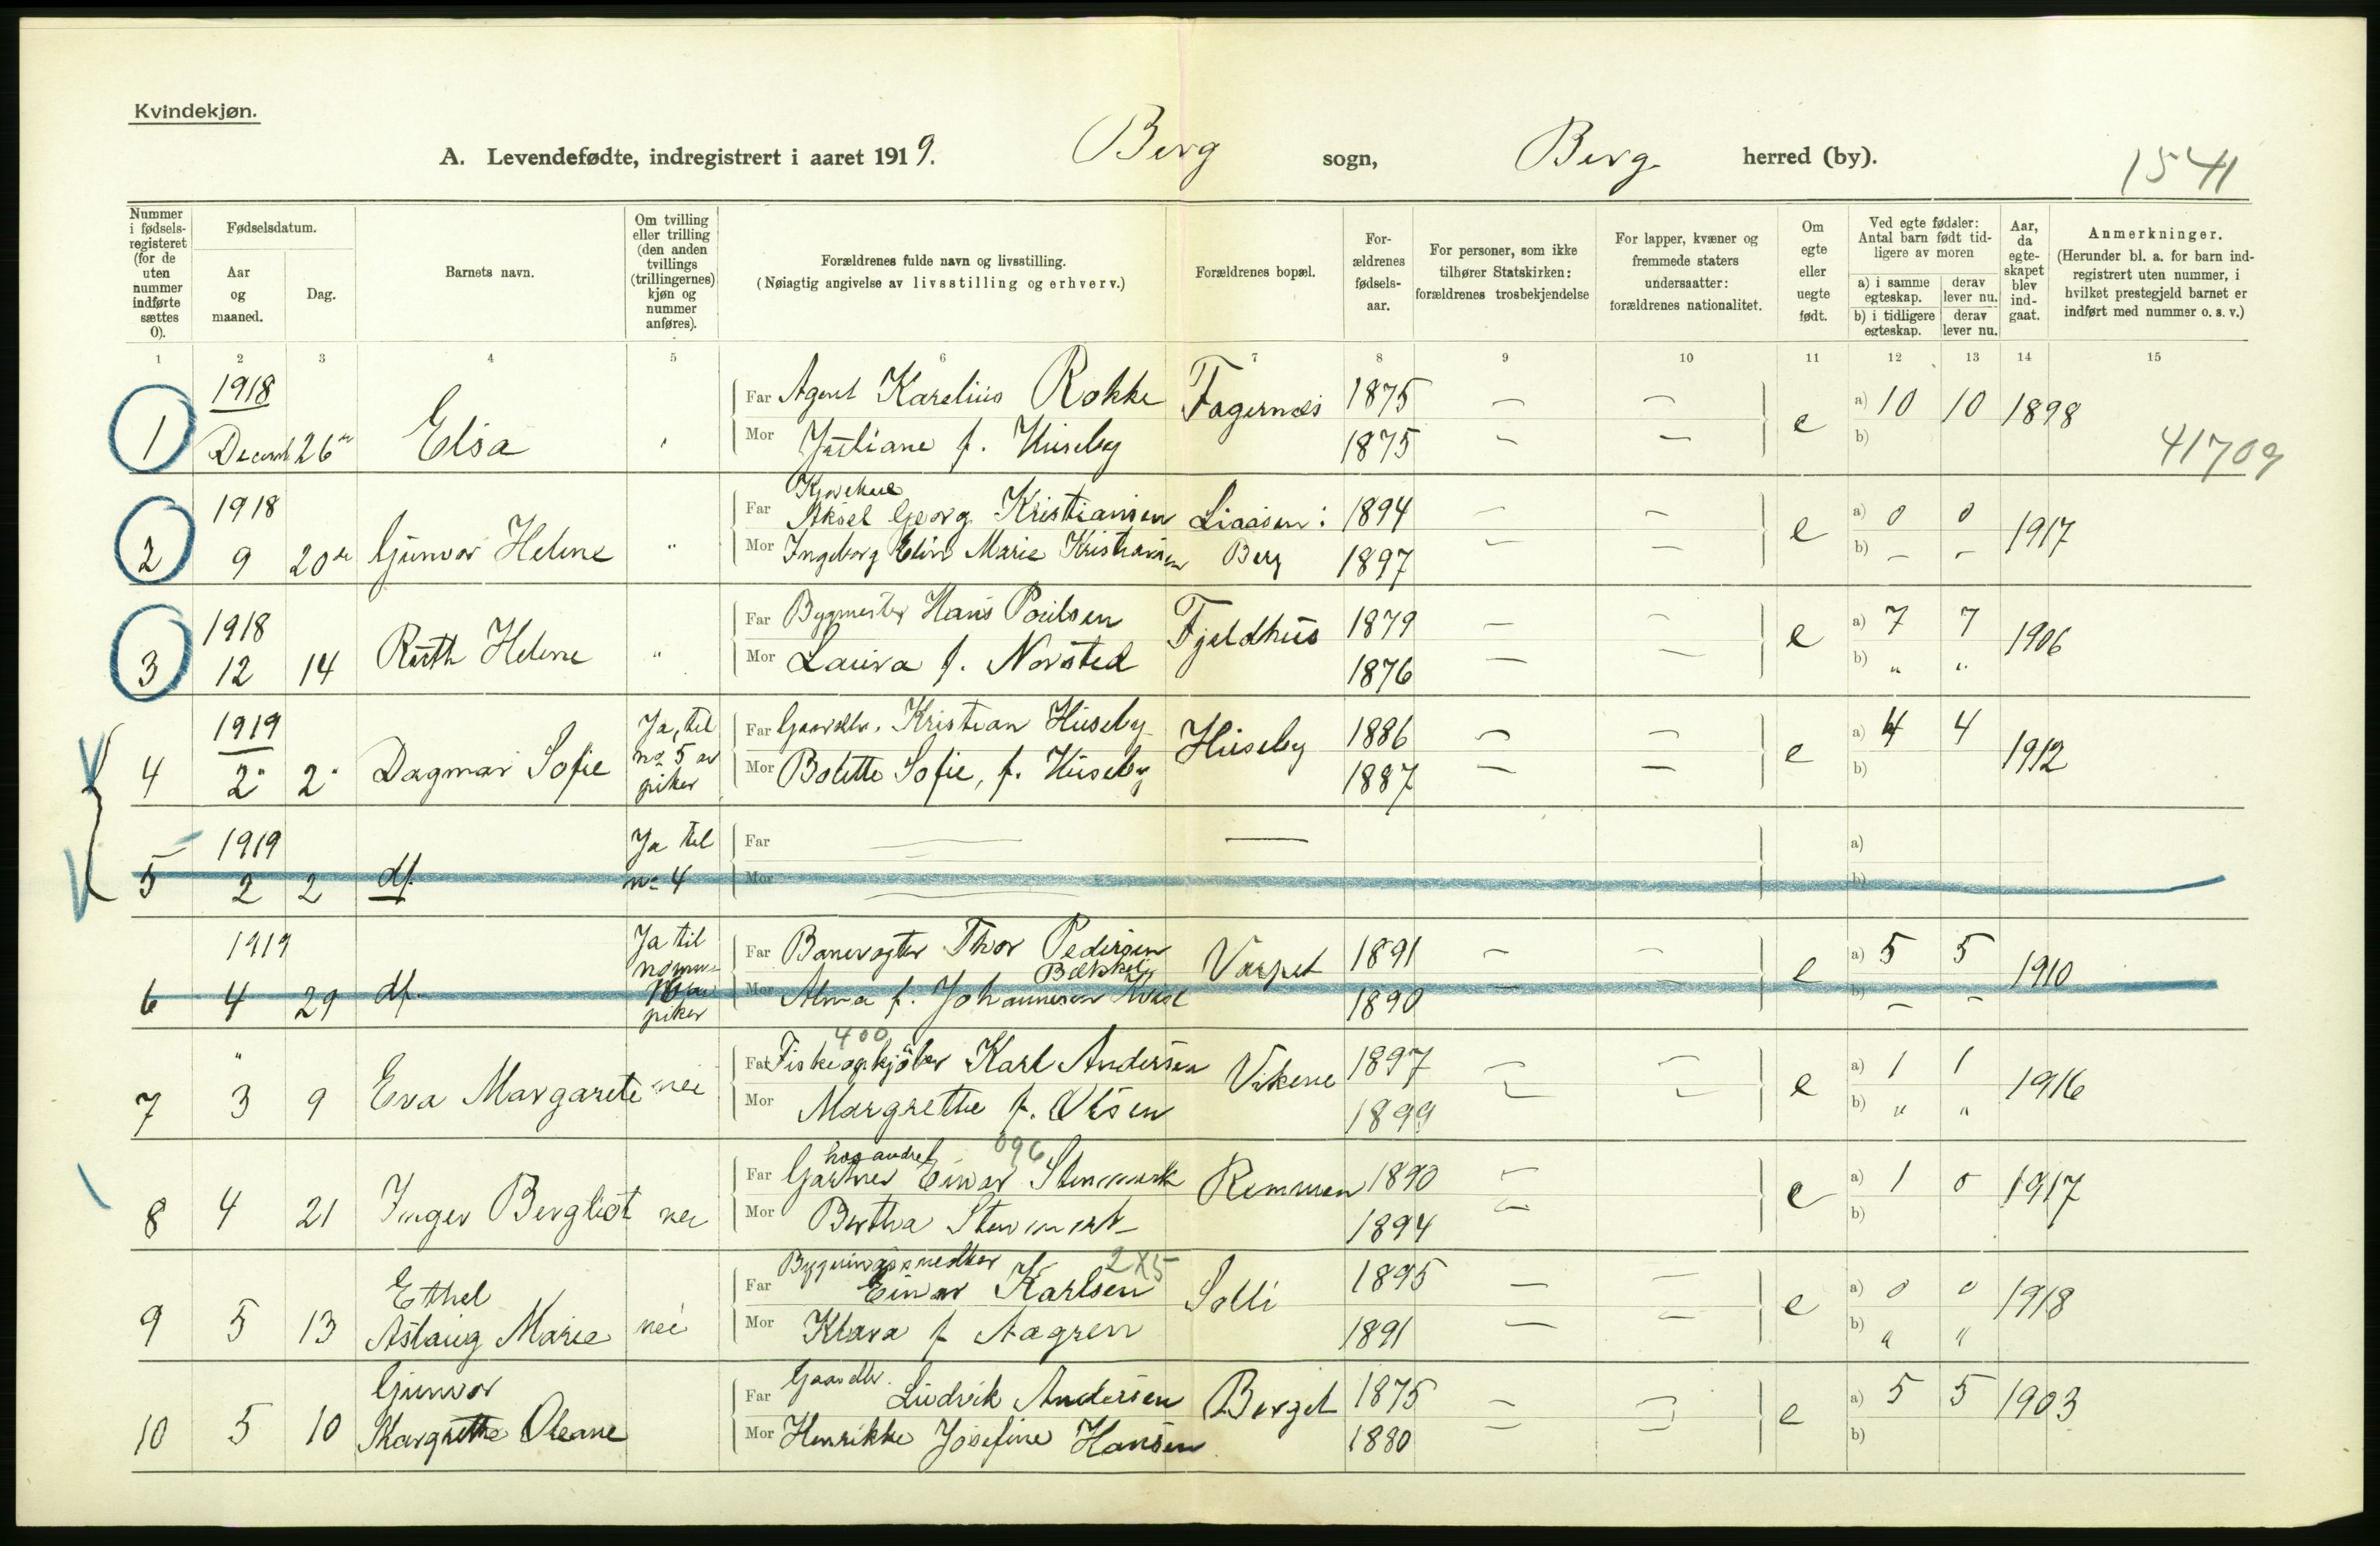 Kvindekjøn.
A. Levendefødte, indregistrert i aaret 1919. Berg sogn, Berg herred (by). 1541
Nummer i fødsels-registeret (for de uten nummer indførte sættes 0).
Fødselsdatum.
Aar og maaned.
Dag.
Barnets navn.
Om tvilling eller trilling (den anden tvillings (trillingernes) kjøn og nummer anføres).
Forældrenes fulde navn og livsstilling.
(Nøiagtig angivelse av livsstilling og erhverv.)
Forældrenes bopæl.
For-ældrenes fødsels-aar.
For personer, som ikke tilhører Statskirken: forældrenes trosbekjendelse
For lapper, kvæner og fremmede staters undersaatter: forældrenes nationalitet.
Om egte eller uegte født.
Ved egte fødsler: Antal barn født tid-ligere av moren
a) i samme egteskap. derav lever nu.
b) i tidligere egteskap. derav lever nu.
Aar, da egte-skapet blev ind-gaat.
Anmerkninger.
(Herunder bl. a. for barn ind-registrert uten nummer, i hvilket prestegjeld barnet er indført med nummer o. s. v.)
1 2 3 4 5 6 7 8 9 10 11 12 13 14 15
1918
Far Agent Karelius Rokke Fagernæs 1875 — — a) 10 10 1898
1 Decem 26 Elsa Mor Juliane f. Huseby 1875 — — e b)
41709
1918
Far Aksel Georg Kristiansen Liaasen: 1894 — — a) 0 0
2 9 20de Gunvor Helene " Mor Ingeborg Elin Marie Kristiansen Berg 1897 — — e b) — — 1917
1918
Far Bygmester Hans Poulsen Fjeldhus 1879 — — a) 7 7
3 12 14 Ruth Helene " Mor Laura f. Norsted 1876 — — e b) " " 1906
1919
Ja, til no 5 av piker
Far Gaardbr. Kristian Huseby Huseby 1886 — — a) 4 4
4 2 2 Dagmar Sofie Mor Bolette Sofie, f. Huseby 1887 — — e b) 1912
1919
Ja til no 4
Far — — a)
5 2 2 df. Mor — b)
1919
Ja til
piker
Far Banevogter Thor Pedersen Vaspet 1891 — — a) 5 5
Bækkely
6 4 29 df. Mor Alma f. Johannesen 1890 — e b) — — 1910
400
" Far Fiskeopkjøber Karl Andersen Vikene 1897 — — a) 1 1
7 3 9 Eva Margarete nei Mor Margrethe f. Olsen 1899 — — e b) " " 1916
hos andre 096
Far Gartner Einar Stenmark Remmen 1890 — a) 1 0
8 4 21 Inger Bergliot nei Mor Bertha Stenmark 1894 — e b) 1917
Bygningssnedker 2X5
Far Einar Karlsen Solli 1895 — — a) 0 0
9 5 13 Ethel Aslaug Marie nei Mor Klara f Aagren 1891 — — e b) " " 1918
Gaardbr.
Far Ludvik Andersen Berget 1875 — — a) 5 5
10 5 10 Gunvor Margrethe Oleane Mor Henrikke Josefine Hansen 1880 — — e b) 1903